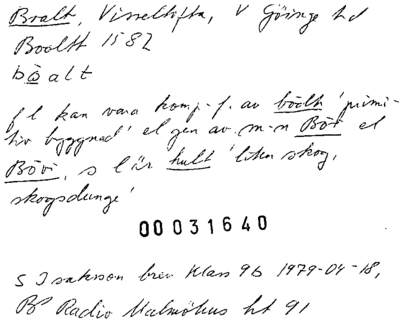 Bralt, Visseltofta, V Göinge hd
Booltt 1582
bòalt
fl kan vara komp.-f. av bödh 'primi-
tiv byggnad' el gen av m-n Bör el
Bövi, s l är hult 'liten skog,
skogsdunge'
00031640
S Isaksson brev Klass 9b 1979-04-18,
BP Radio Malmöhus ht 91